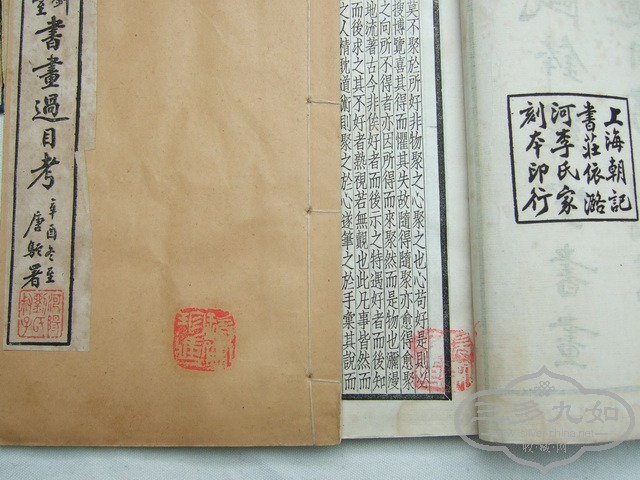 上海朝記
書莊依潞
河李氏家
刻本印行
莫不聚於所好非物聚之心聚之也心苟好是則必
搜博覽喜其得而懼其失故隨得隨聚亦愈得愈聚
之向所不得者亦因所得而來聚然而是物也瀰漫
地流著古今非俟好者而後示之特遇好者而後知
而後求之其不好者熟視若無覩也此凡事皆然而
之人精道衡則聚之於心遂筆之於手彙其說而
書畫過目考
辛酉冬至
唐駝署
三多九如
收藏网